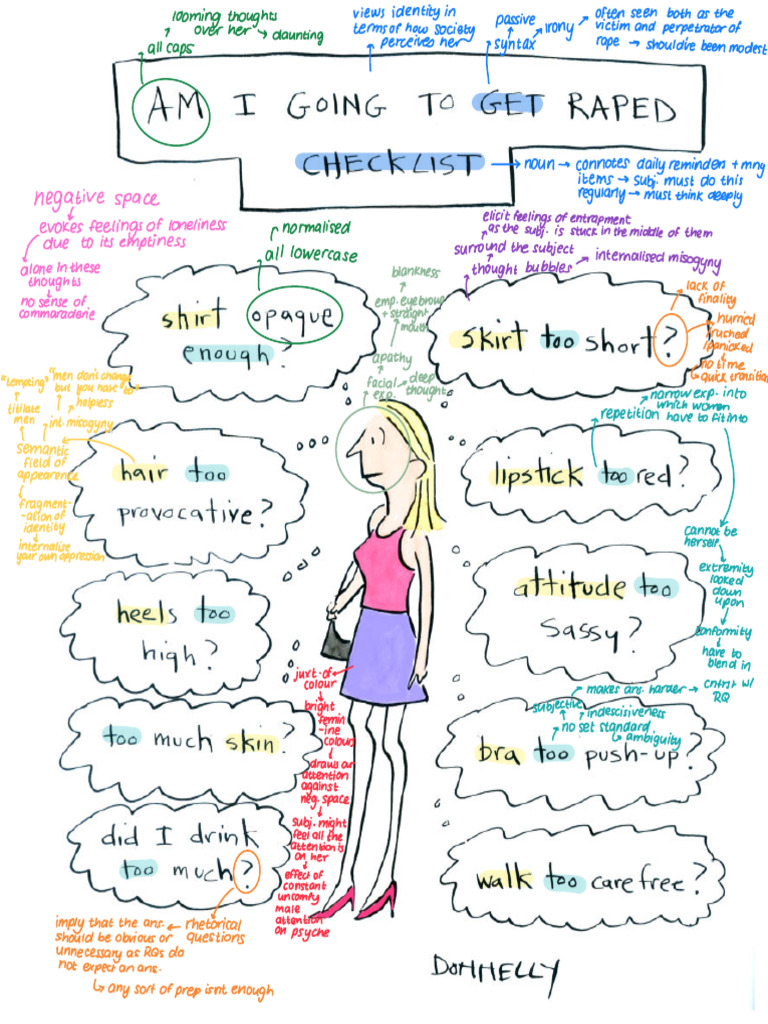 looming thoughts
over her → daunting
all caps
views identity in
terms of how society
perceives her
passive
syntax
irony
often seen both as the
victim and perpetrator of
rape → should've been modest
AM I GOING TO GET RAPED
CHECKLIST
noun → connotes daily reminden + mny
items → subj. must do this
regularly → must think deeply
negative space
evokes feelings of loneliness
due to its emptiness
alone in these
thoughts
no sense of
commaraderie
normalised
all lowercase
elicit feelings of entrapment
as the subj. is stuck in the middle of them
surround the subject
thought bubbles
internalised misogyny
blankness
emp. eyebrows
+ straight
mouth
apathy
facial
exp.
deep
thought
lack of
finality
hurried
rushed
panicked
no time
quick transition
shirt opaque
enough?
skirt too short?
"tempting"
"men don't change
but you have to"
helpless
titilate
men
int. misogyny
semantic
field of
appearence
fragment-
-ation of
identity
internalise
your own oppression
narrow exp. into
which women
have to fit into
repetition
hair too
provocative?
lipstick too red?
cannot be
herself
extremity
looked
down
upon
conformity
have to
blend in
heels too
high?
attitude too
sassy?
makes ans. harder → cntrst w/
RQ
subjective
indescisiveness
no set standard
ambiguity
juxt. of
colour
bright
femin
-ine
colour
draws our
attention
against
neg. space
subj. might
feel all the
attention is
on her
effect of
constant
uncomfy
male
attention
on psyche
too much skin?
bra too push-up?
did I drink
too much?
walk too care free?
rhetorical
questions
imply that the ans.
should be obvious or
unnecessary as RQs do
not expect an ans.
↳ any sort of prep isnt enough
DONNELLY